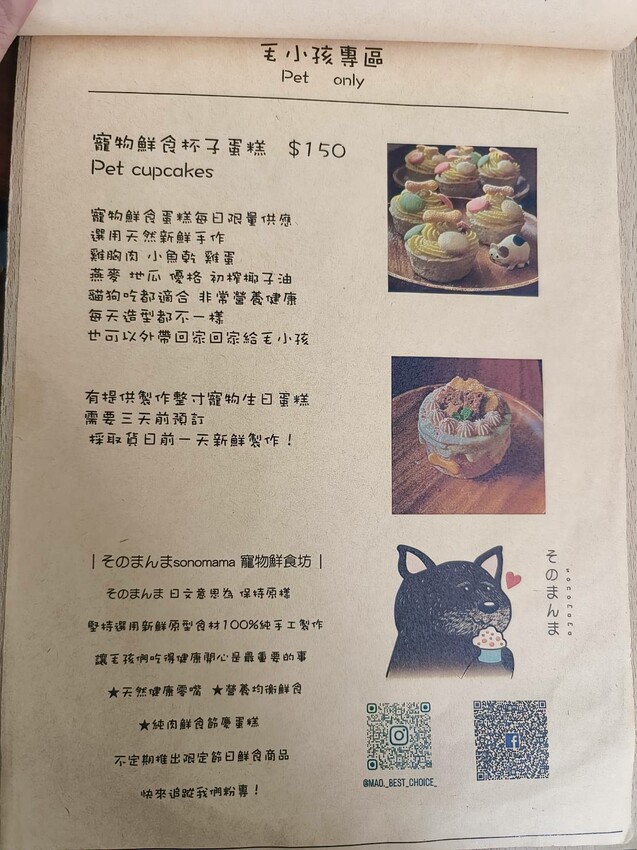 毛小孩專區
Pet only
寵物鮮食杯子蛋糕 $150
Pet cupcakes
寵物鮮食蛋糕每日限量供應、
選用天然新鮮手作
雞胸肉 小魚乾 雞蛋
燕麥 地瓜 優格 初榨椰子油
貓狗吃都適合 非常營養健康
每天造型都不一樣
也可以外帶回家回家給毛小孩
有提供製作整寸寵物生日蛋糕
需要三天前預訂
採取貨日前一天新鮮製作！
|そのまんまsonomama 寵物鮮食坊|
そのまんま 日文意思為 保持原樣
堅持選用新鮮原型食材100%純手工製作
讓毛孩們吃得健康開心是最重要的事
★天然健康零嘴 ★營養均衡鮮食
★純肉鮮食節慶蛋糕
不定期推出限定節日鮮食商品
快來追蹤我們粉專！
そのまんま
@MAO._BEST_CHOICE_